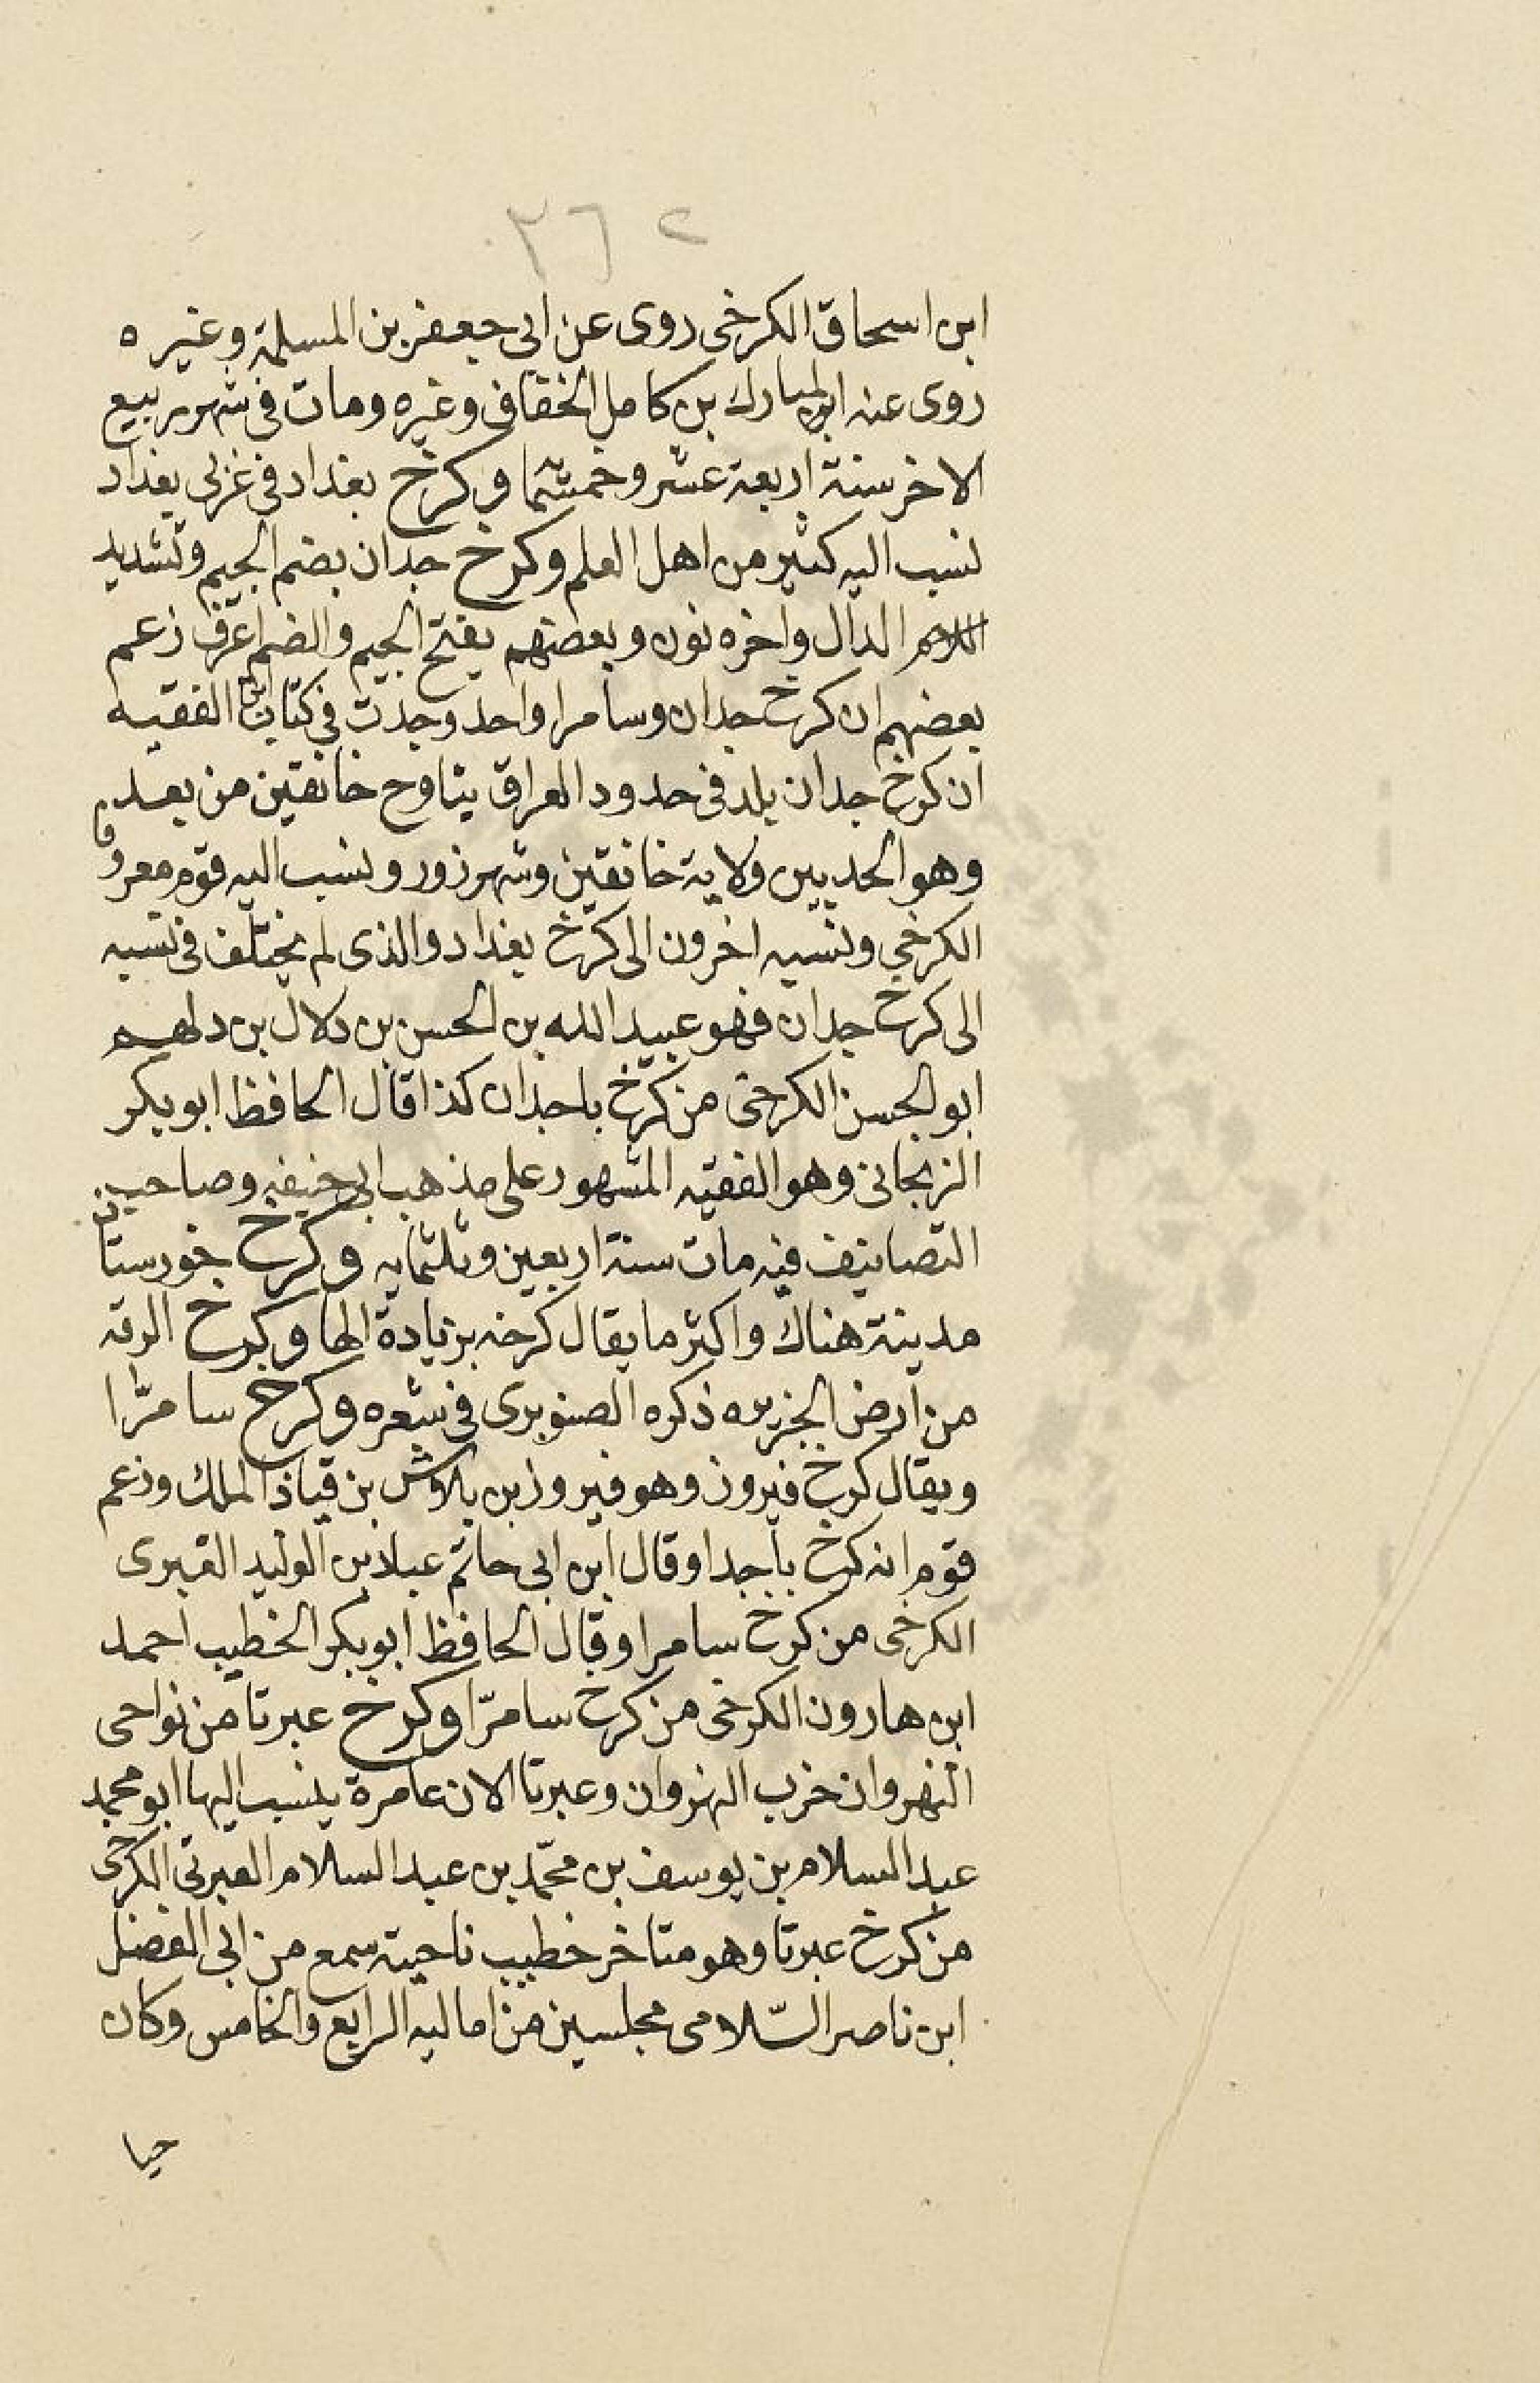 ٢٦٢
ابن اسحاق الكرخى روى عن ابى جعفر بن المسلمة وغيره
روى عنه ابو المبارك بن كامل الخفاف وغيره ومات فى شهر ربيع
الاخر سنة اربعة عشر وخمسما وكرخ بغداد فى غربى بغداد
نسب اليه كثير من اهل العلم وكرخ جدان بضم الجيم وتشديد
الدال واخره نون وبعضهم يفتح الجيم والضم اعرف زعم
بعضهم ان كرخ جدان وسامرا واحد وجدت فى كتاب الفقيه
ان كرخ جدان بلد فى حدود العراق يناوح خانقين من بعد
وهو الحد بين ولاية خانقين وشهرزور ونسب اليه قوم معروفا
الكرخي ونسبه اخرون الى كرخ بغداد والذى لم يختلف فى نسبه
الى كرخ جدان فهو عبيد الله بن الحسن بن دلال بن دلهم
ابو الحسن الكرخى من كرخ باجدان كذا قال الحافظ ابو بكر
الزنجانى وهو الفقيه المشهور على مذهب ابى حنيفه وصاحب
التصانيف فيه مات سنة اربعين وثلثمايه وكرخ خورستان
مدينة هناك واكثر ما يقال كرخه بزيادة الها وكرخ الرقه
من ارض الجزيره ذكره الصنوبرى فى شعره وكرخ سامرّا
ويقال كرخ فيروز وهو فيروز بن بلاوش بن قباذ الملك وزعم
قوم انه كرخ باجدا وقال ابن ابى حاتم عباد بن الوليد الغبرى
الكرخى من كرخ سامرا وقال الحافظ ابو بكر الخطيب احمد
ابن هارون الكرخى من كرخ سامرّا وكرخ عبرتا من نواحى
النهروان خرب النهروان وعبرتا الان عامرة ينسب اليها ابو محمد
عبد السلام بن يوسف بن محمّد بن عبد السلام العبرتى الكرخى
من كرخ عبرتا وهو متاخر خطيب ناحيته سمع من ابى الفضل
ابن ناصر السّلامى مجلسين من اماليه الرابع والخامس وكان
حيا